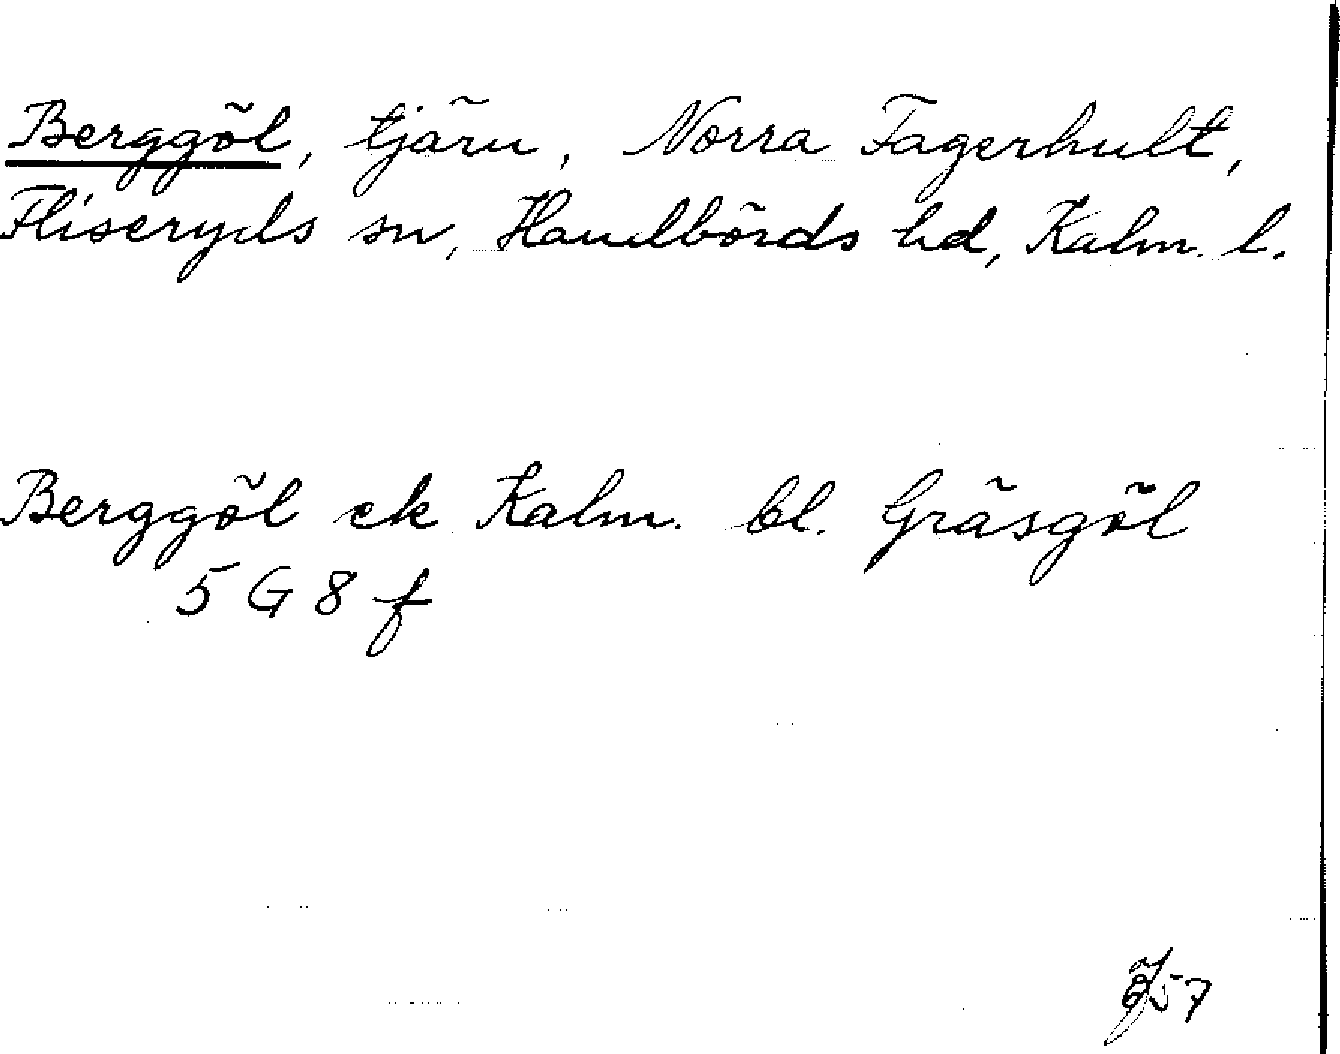 Berggöl, tjärn, Norra Fagerhult,
Fliseryds sn, Handbörds hd, Kalm. l.
Berggöl ek Kalm. bl. Gräsgöl
5 G 8 f
57